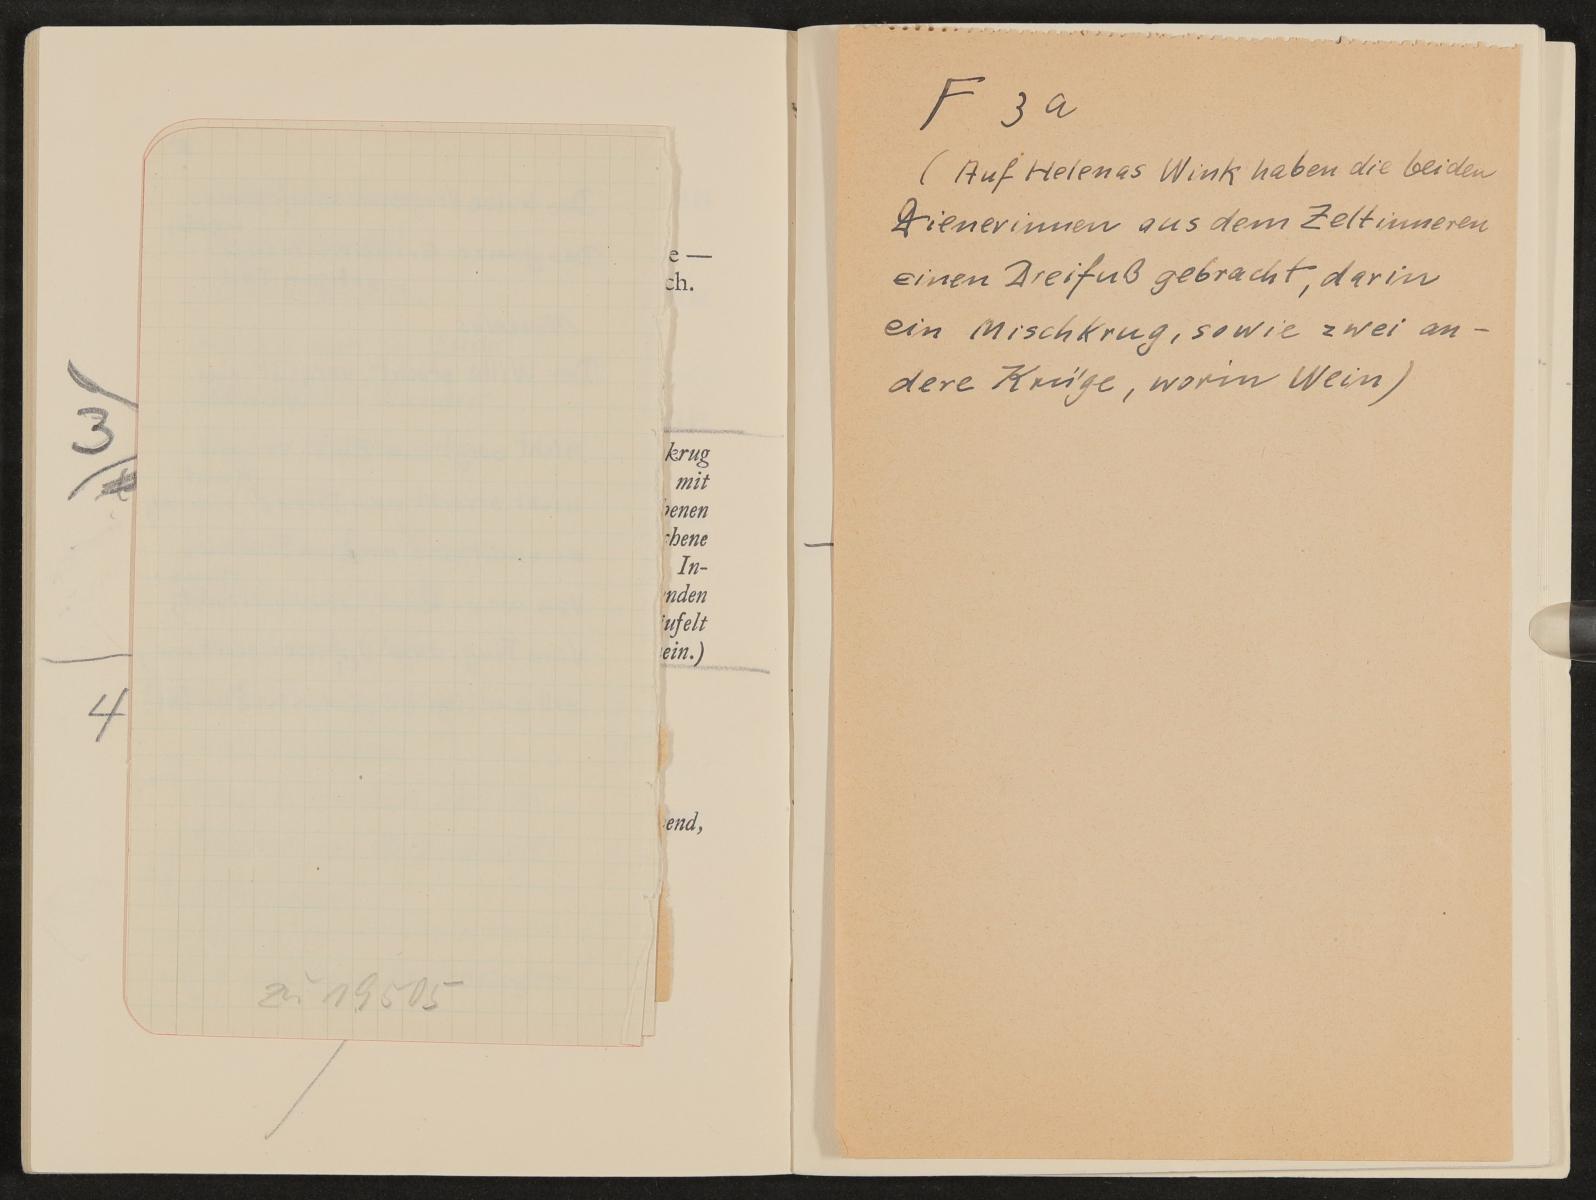 e —
ch.
3
krug
mit
benen
chene
In-
nden
ufelt
ein.)
4
end,
zu 19505
F 3a
( Auf Helenas Wink haben die beiden
Dienerinnen aus dem Zeltinneren
einen Dreifuß gebracht, darin
ein Mischkrug, sowie zwei an-
dere Krüge, worin Wein)